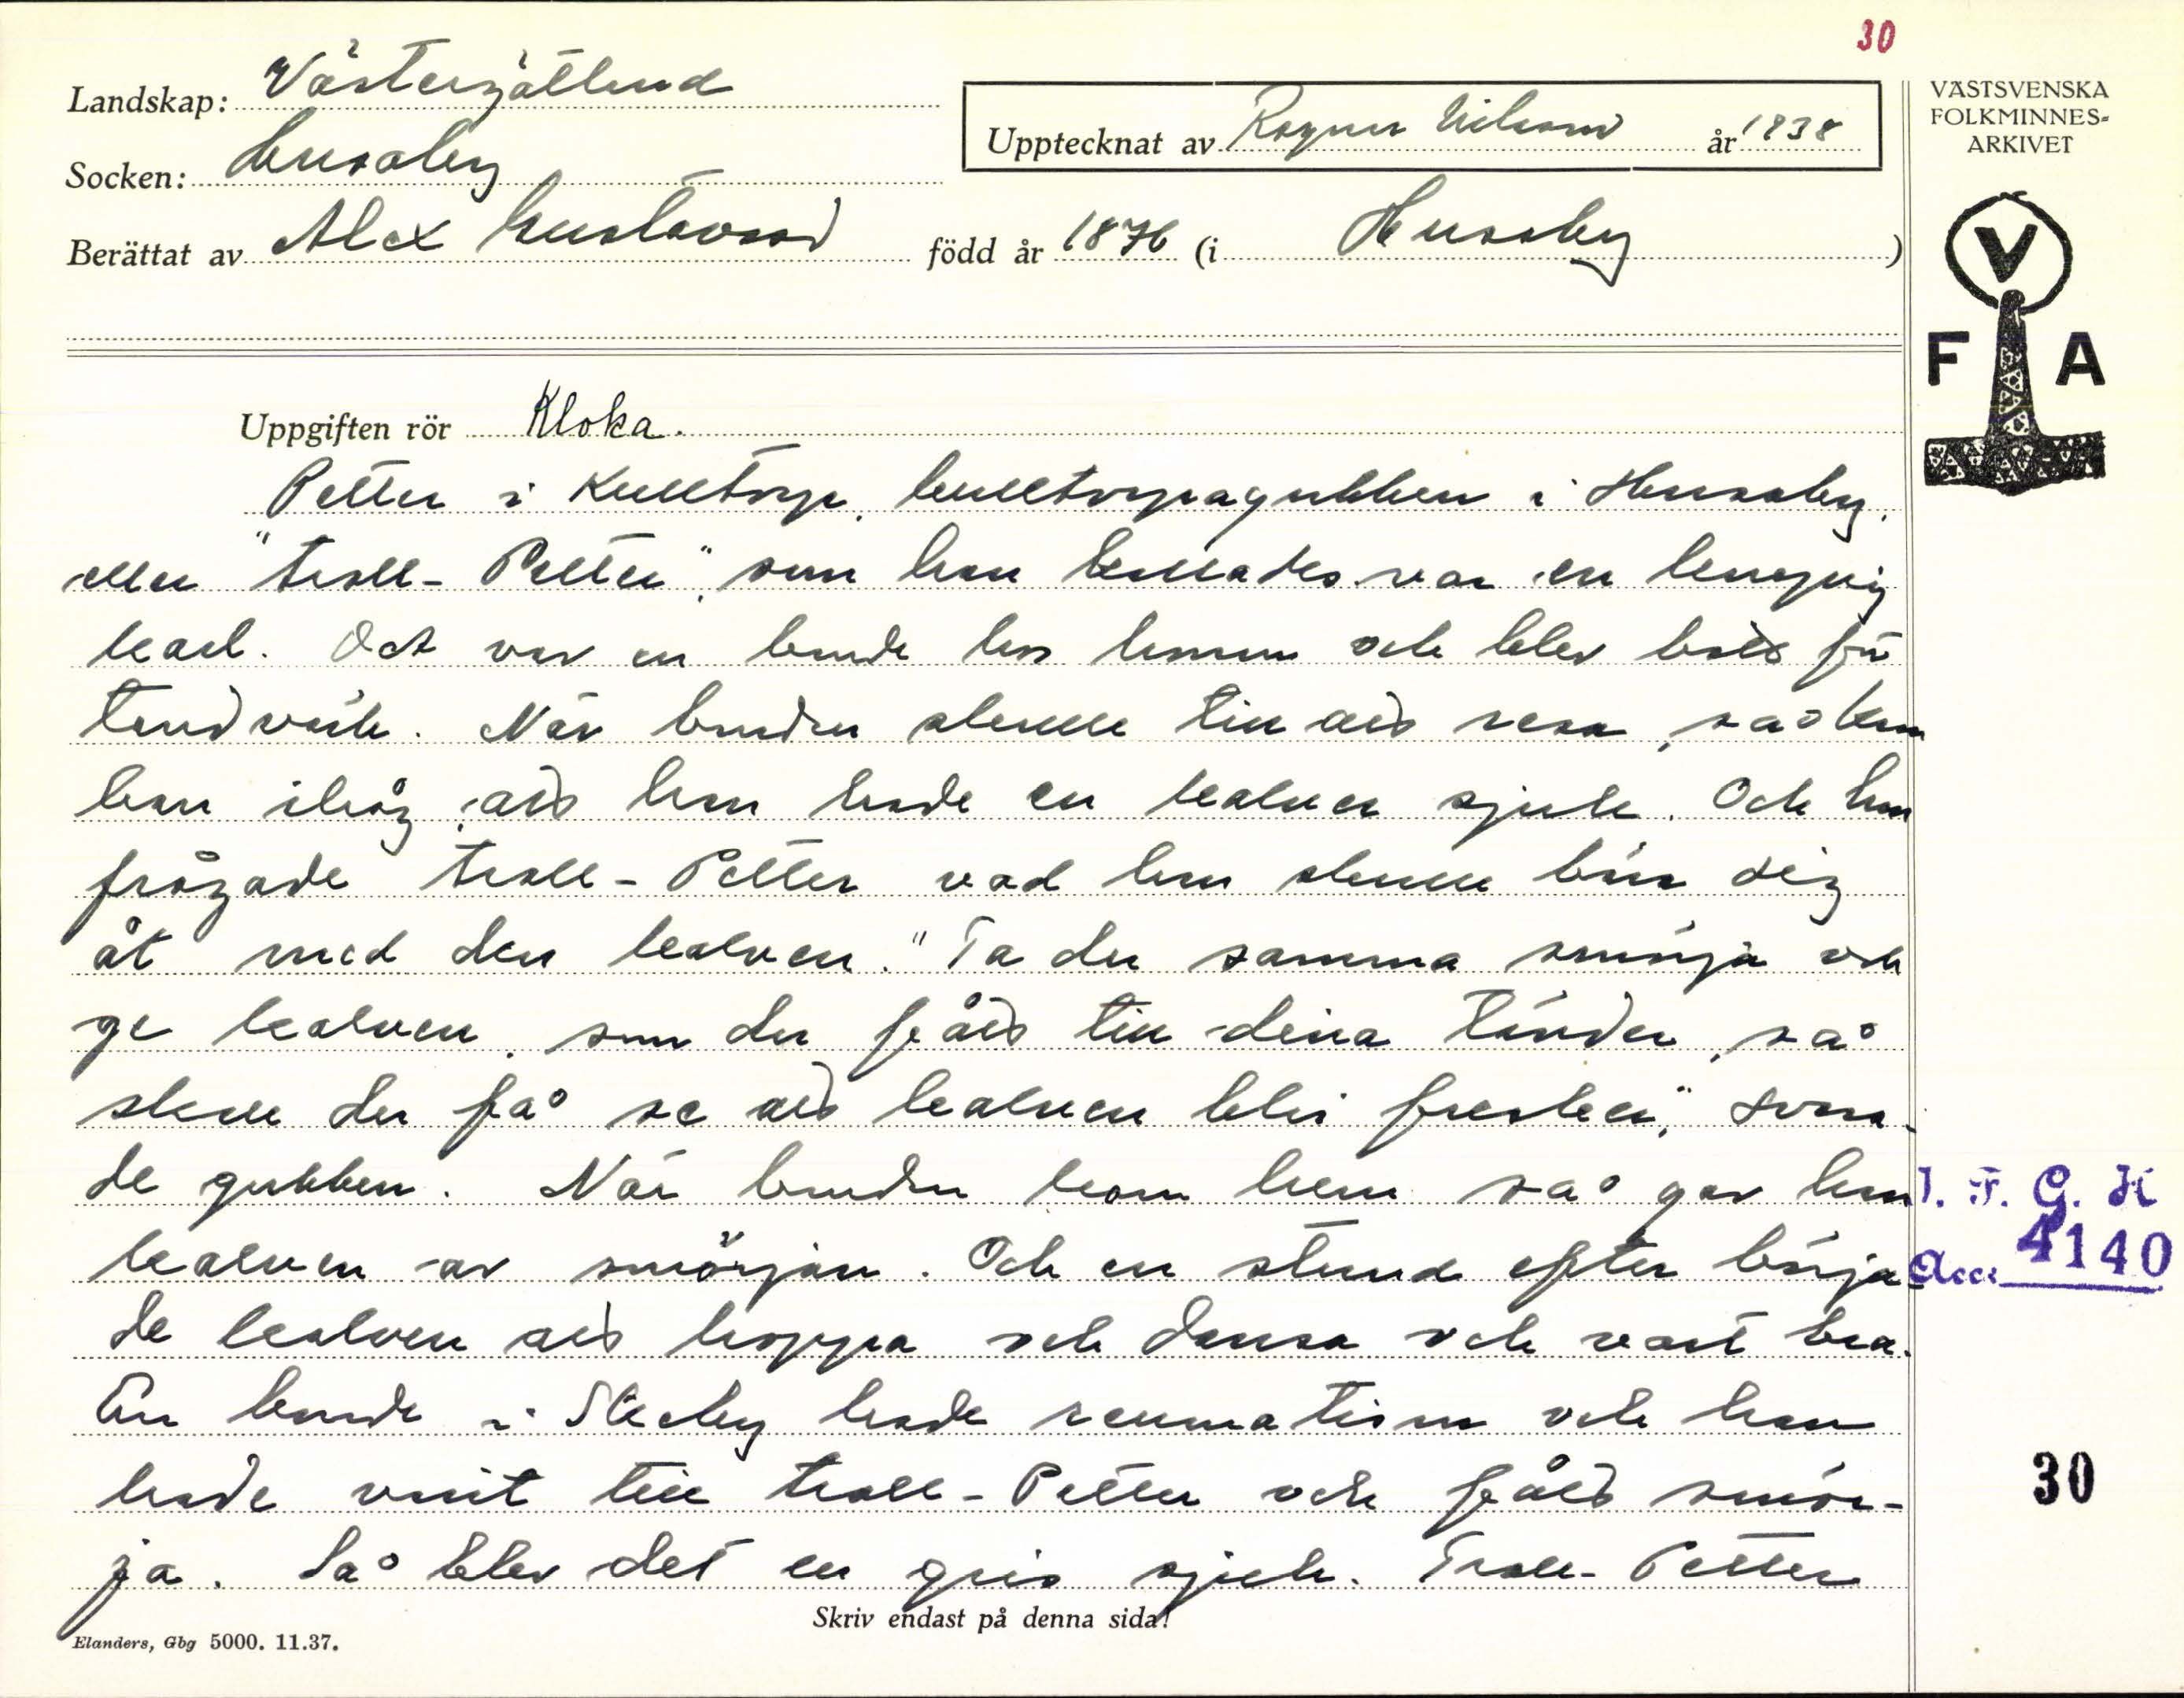 30
Landskap: Västergötland
Socken: Husaby
Upptecknat av Ragnar Nilsson år 1938
Berättat av Alex Gustavsson född år 1876 (i Husaby)
VÄSTSVENSKA
FOLKMINNES-
ARKIVET
V
F A
Uppgiften rör Kloka.
Petter i Kulltorp, kulltorpagubben i Husaby,
eller "Troll-Petter", som han kallades var en kunnig
karl. Det var en bonde hos honom och blev botad för
tandvärk. När bonden skulle till att resa, så kom
han ihåg, att han hade en kalv sjuk. Och han
frågade Troll-Petter vad han skulle bära sig
åt med den kalven. "Ta du samma smörja och
ge kalven, som du fått till dina tänder, så
skall du få se att kalven blir frisker", svara-
de gubben. När bonden kom hem så gav han
kalven av smörjan. Och en stund efter börja-
de kalven att hoppa och dansa och vart bra.
En bonde i Skeby hade reumatism och han
hade varit till Troll-Petter och fått smör-
ja. Så blev det en gris sjuk. Troll-Petter
I. F. G. H
Acc. 4140
30
Skriv endast på denna sida!
Elanders, Gbg 5000. 11.37.